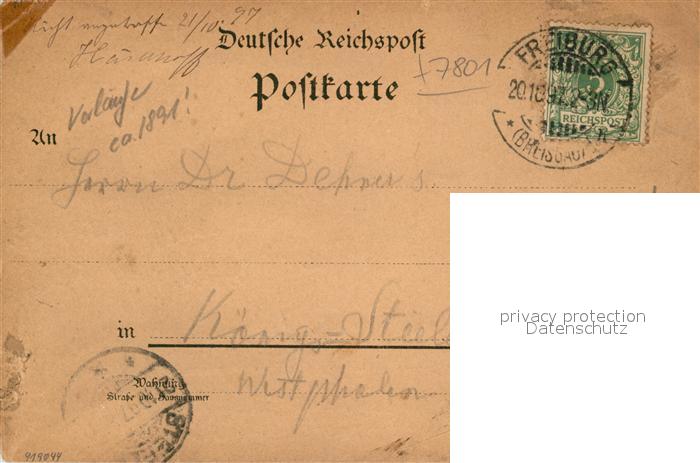 Nicht angetroffen 21/10 97
Deutsche Reichspost
Postkarte
+7801
Vorläufer
ca. 1891!
FREIBURG
20.10.97. 2-3N
(BREISGAU)
REICHSPOST
An
Herrn Dr
in
König-
Westphalen
Wohnung
Straße und Hausnummer
919044
privacy protection
Datenschutz